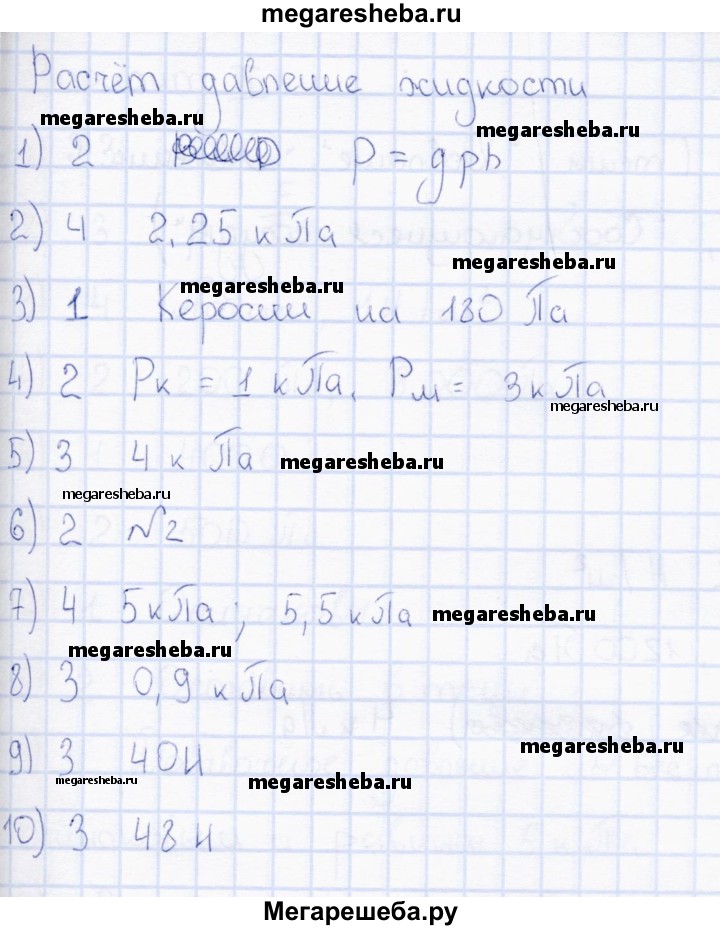 megaresheba.ru
Расчёт давление жидкости
megaresheba.ru
megaresheba.ru
1) 2 P = gρh
2) 4 2,25 кПа
megaresheba.ru
megaresheba.ru
3) 1 Керосин на 180 Па
4) 2 Pк = 1 кПа. Pм = 3 кПа
megaresheba.ru
5) 3 4 кПа megaresheba.ru
megaresheba.ru
6) 2 №2
7) 4 5 кПа; 5,5 кПа megaresheba.ru
megaresheba.ru
8) 3 0,9 кПа
megaresheba.ru
9) 3 40Н
megaresheba.ru
megaresheba.ru
10) 3 48 Н
Мегарешеба.ру